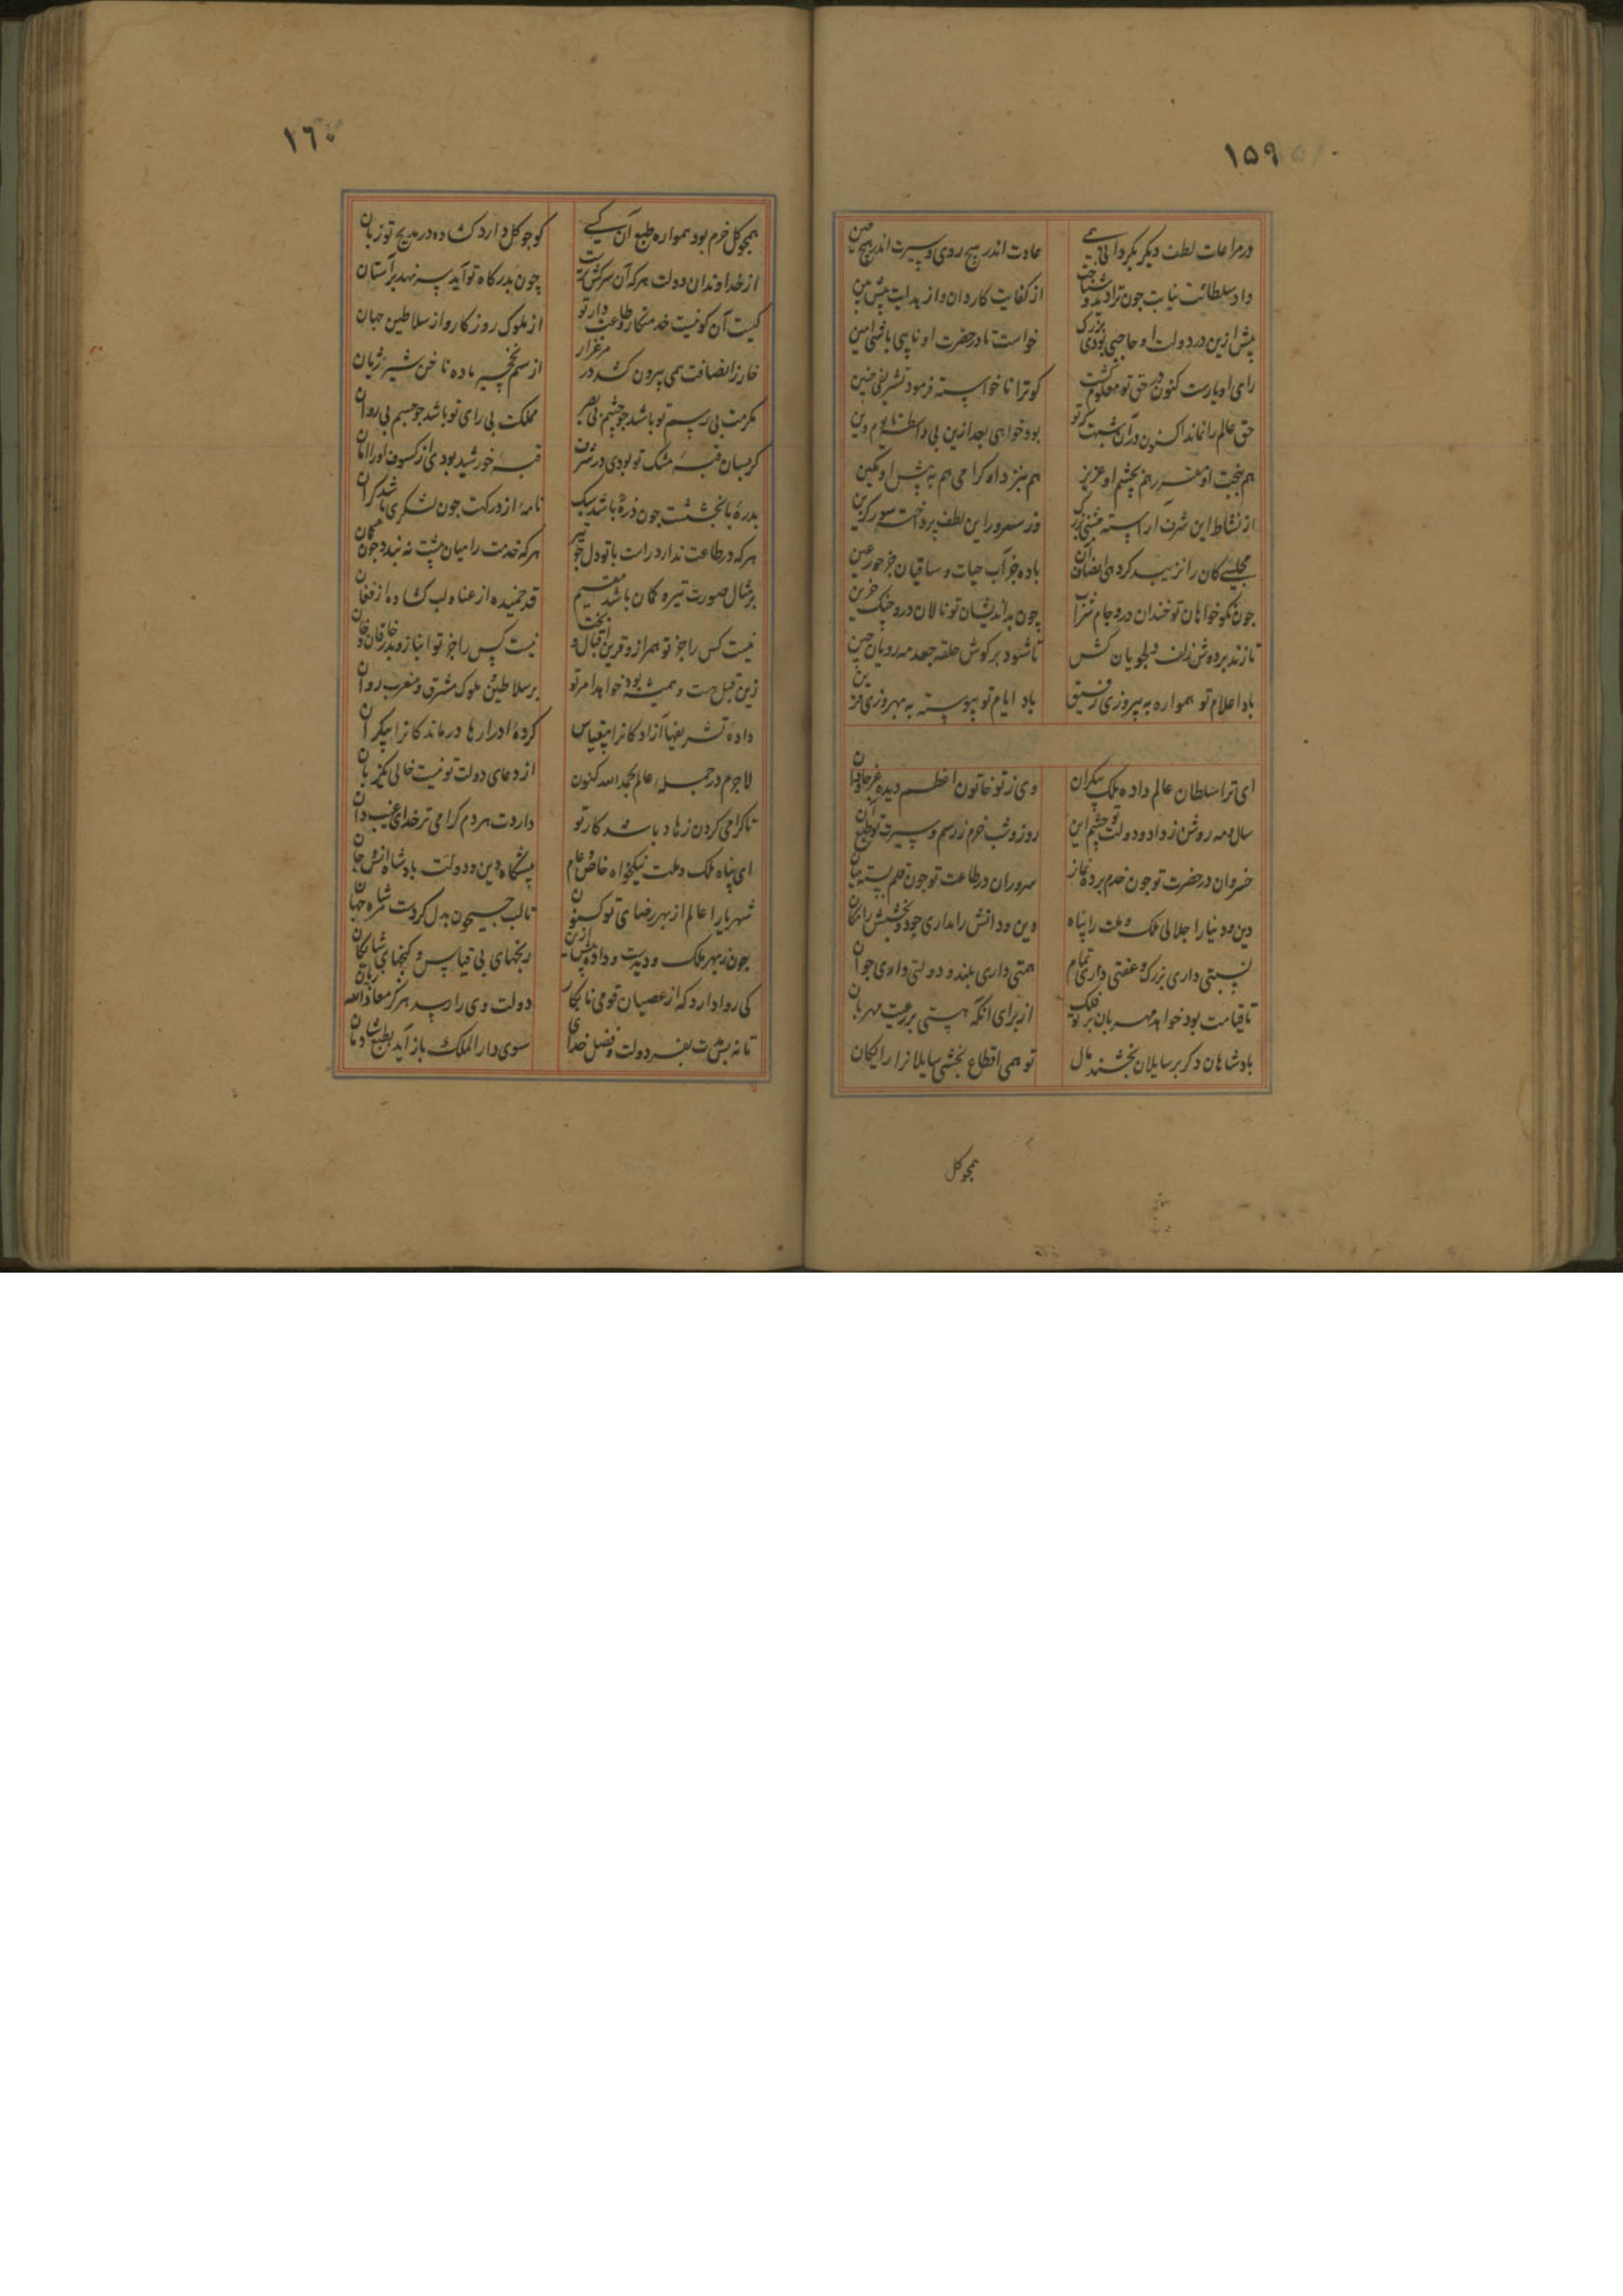 ۱۵۹
در مراعات لطف دیکر بکردانی همی عادت اندر هیچ روی و سیرت اندر هیچ حین
داد سلطانت نیابت چون ترا دید و شناخت از کفایت کاردان و از بدایت پیش بین
پیش ازین در دولت او حاجبی بودی بزرک خواست تا در حضرت او نایبی باشی امین
رای او یارست کنون در حق تو معلوم کشت کو ترا ناخواسته فرمود تشریفی چنین
حق عالم را نماند اکنون در آن شبهت که تو بود خواهی بعد ازین بی واسطه تا یوم دین
هم بنزد او کرامی هم به پیش او مکین
از نشاط این شرف آراسته جشنی بزرک
مجلسی کان را نزیبد کرد های بضان باده جز آب حیات و ساقیان جز حور عین
چون نکو خواهان تو خندان درو جام شراب چون بداندیشان تو نالان درو چنک حزین
تا زند بر دوش زلف دلجویان کش تا شود بر کوش حلقه جعد مه رویان چین
باد اعلام تو همواره به پیروزی رفیق باد ایام تو پیوسته به بهروزی قرین
ای ترا سلطان عالم داده ملک بیکران وی ز تو خاتون اعظم دیده عز جاودان
سال و مه روشن ز داد و دولت تو چشم این روز و شب خرم ز رسم و سیرت تو طبع آن
خسروان در حضرت تو چون خدم برده نماز سروران در طاعت تو چون قلم بسته میان
دین و دنیا را جلالی ملک و ملت را پناه دین و دانش را مداری جود و بخشش را مکان
نسبتی داری بزرک و عفتی داری تمام همتی داری بلند و دولتی داری جوان
تا قیامت بود خواهد مهربان بر تو فلک از برای آنکه هستی بر رعیت مهربان
بادشاهان دکر بر سایلان بخشند مال تو همی اقطاع بخشی سایلانرا رایکان
همچو کل
۱٦۰
همچو کل خرم بود همواره طبع آن کسی کو چو کل دارد کشاده در مدیح تو زبان
از خداوندان دولت هر که آن سرکش ترست چون بدرکاه تو آید سر نهد بر آستان
کیست آن کو نیست خدمتکار و طاعت دار تو از ملوک روزکار و از سلاطین جهان
خار ز انصافت همی بیرون کشد در مرغزار از سم نخچیر ماده ناخن شیر ژیان
مکرمت بی رسم تو باشد چو چشم بی بصر مملکت بی رای تو باشد چو جسم بی روان
کر بسان قبه مشک تو بودی در شرف قبه خورشید بودی از کسوف اورا امان
بدرۀ با بخششت چون ذرۀ باشد سبک نامۀ از درکهت چون لشکری باشد کران
هر که در طاعت ندارد راست با تو دل چو تیر هر که خدمت را میان پشت نه بندد چون کمان
بر مثال صورت تیر و کمان باشد مقیم قد خمیده از عنا و لب کشاده از فغان
نیست کس را جز تو همراز و قرین اقبال و بخت نیست کس را جز تو انباز و پدر خاقان و خان
زین قبل هست و همیشه بود خواهد امر تو بر سلاطین و ملوک مشرق و مغرب روان
دادۀ تشریفها آزادکانرا بیقیاس کردۀ ادرارها درماندکانرا بیکران
لاجرم در جمله عالم بحمد الله کنون از دعای دولت تو نیست خالی یکزبان
تا کرامی کردن زهاد باشد کار تو داردت هر دم کرامی تر خدای غیب دان
ای پناه ملک و ملت نیکخواه خاص و عام پیشکاه دین و دولت بادشاه انس و جان
شهریارا عالم از بهر رضای تو کنون تا لب جیحون بدل کردت شاه جهان
چون ز بهر ملک و دیدست و داده پیش ازین رنجهای بی قیاس و کنجهای شایکان
کی روا دارد که از عصیان قومی نابکار دولت وی را رسد هرکز معاذ الله زیان
تا نه بس مدت بفر دولت و فضل خدای سوی دار الملک باز آید بطبع شادمان